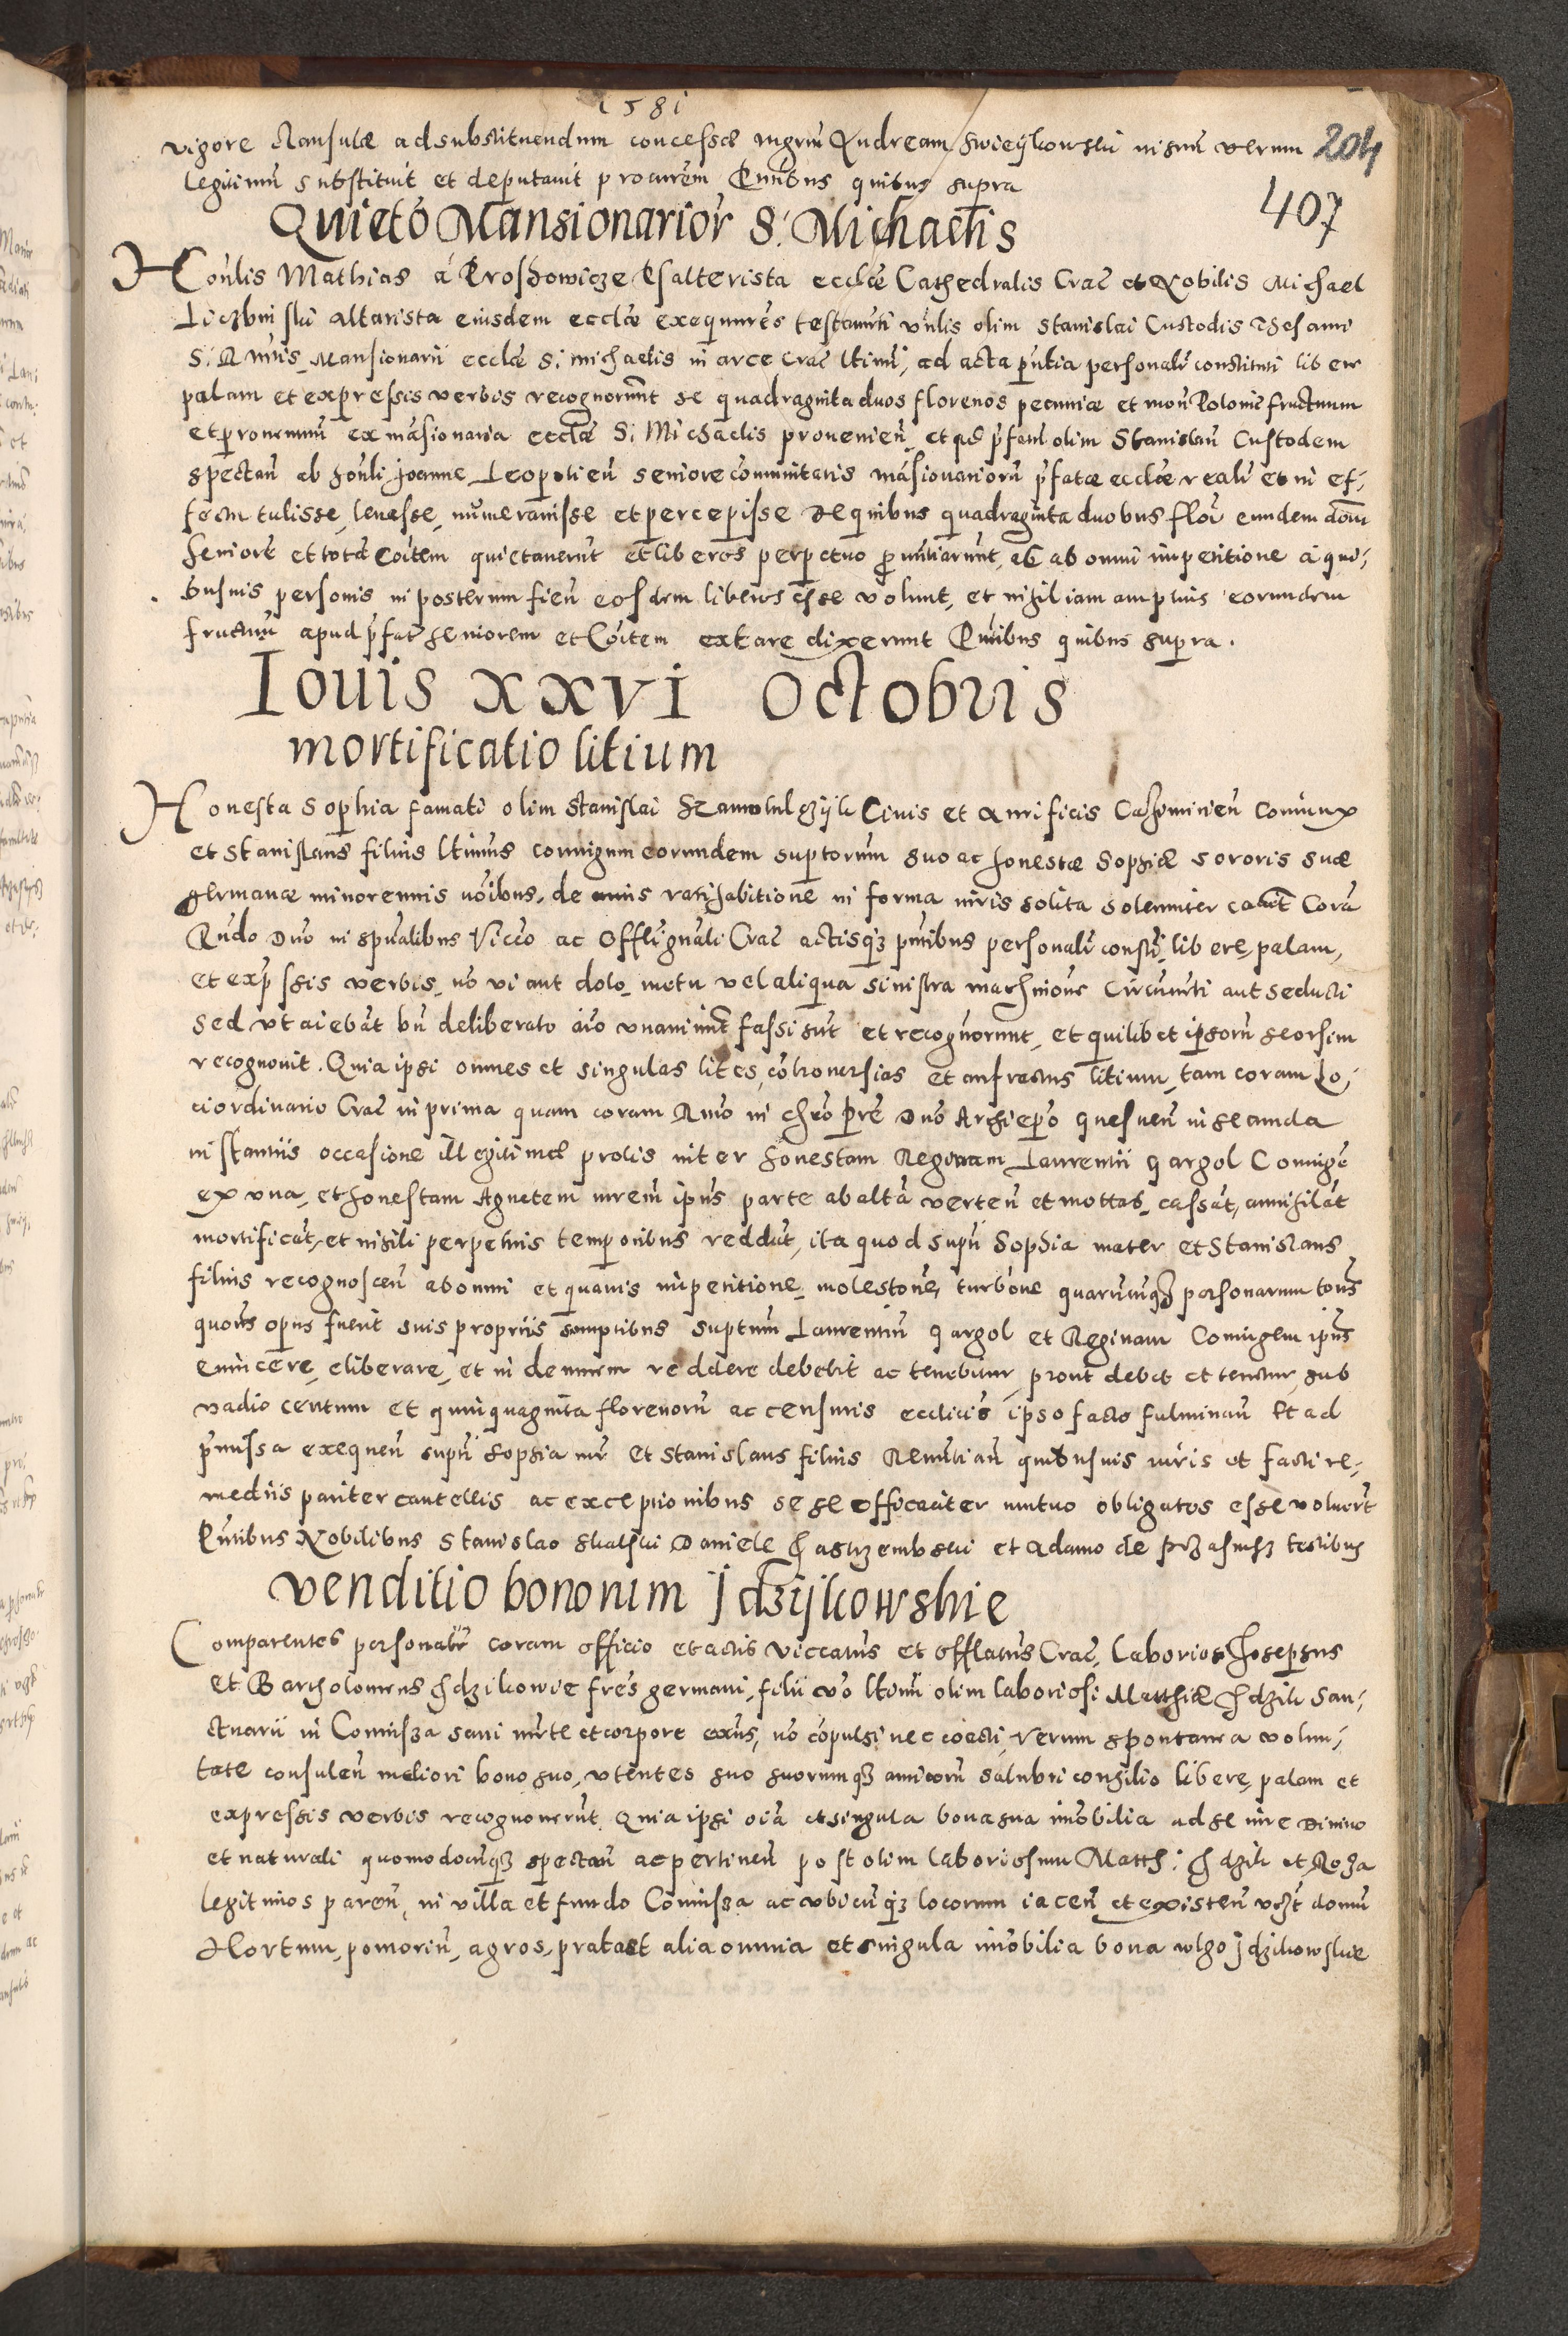 1581
vigore clausulæ ad substituendum concessæ mgrm Andream Swieÿkowski in suu verum
204
legitimu substituit et deputavit procurem Pntibus quibus supra
407
Quietō Mansionarior S. Michaelis
Honlis Mathias à Proshowicze Psalterista ecclæ Cathedralis Crac et Nobilis Michael
Liczbinski altarista eiusdem ecclæ exequutres testamti vnlis olim Stanislai Custodis Thesauri
S. R mtis Mansionarii ecclæ S. Michaelis in arce Crac ltimi, ad acta pntia personalr constituti libere
palam et expressis verbis recognorunt se quadraginta duos florenos pecuniæ et mon Polonic fructuum
et prouentuu ex māsionaria ecclæ S. Michaelis prouenien, et qd pfatu olim Stanislau Custodem
spectan ab honli Joanne Leopolien seniore comunitatis māsionarioru pfatæ ecclæ realr et in ef-
fectu tulisse, leuasse, numeravisse et percepisse de quibus quadraginta duobus flor eundem dom
seniore et totā Coitem quietauerut et liberos perpetuo pnuntiarunt, ab ab omni impetitione à qui-
busuis personis in posterum fien eosdem liberos esse volunt, et nihil iam amplius eorundem
fructuu apud pfat seniorem et Coitem extare dixerunt Pntibus quibus supra.
Iouis XXVI Octobris
mortificatio litium
Honesta Sophia famati olim Stanislai Ciuis et Aurificis Casimirien Coniunx
et Stanislaus filius ltimus coniugum eorundem suptorum suo ac honestæ Sophiæ sororis suæ
germanæ minorennis noibus, de cuius ratihabitione in forma iuris solita solenniter cauit Corā
Rndo Dno in spualibus Vicco ac Offli gnali Crac actisqz pntibus personalr constti libere, palam,
et expssis verbis, no vi aut dolo, metu vel aliqua sinistra machnione circumti aut seducti
sed vt aiebāt bn deliberato aio vnanimt fassi sut et recognorunt, et quilibet ipsoru seorsim
recognouit. Quia ipsi omnes et singulas lites, cōtrouersias et anfractus litium, tam coram Lo-
ci ordinario Crac in prima quam coram Rmo in chro pre Dno Archiepo Gnesnen in secunda
instantiis occasione illegitimæ prolis inter honestam Reginam Laurentii Gargol Coniugē
ex vna, et honestam Agnetem mrem ipius parte ab altā verten et mottas, cassāt, annihilāt
mortificāt, et nihili perpetuis temporibus reddūt, ita quod supn Sophia mater et Stanislaus
filius recognoscen ab omni et quauis impetitione, molestone, turbone quarumuqz personarum tons
quons opus fuerit suis propriis somptibus suptum Laurentiu Gargol et Reginam Coniugem ipius
euincere, eliberare, et indemnem reddere debebit ac tenebitur, prout debet et tenetur, sub
vadio centum et quinquaginta florenoru ac censuris ecclicis ipso facto fulminan Et ad
pmissa exequen supn Sophia mr et Stanislaus filius Renutian quibusuis iuris et facti re-
mediis pariter cautellis ac exceptionibus sese efficaciter mutuo obligatos esse voluert
Pntibus Nobilibus Stanislao Skalski Daniele Jastrzembski et Adamo de Przasnisz testibus
venditio bonorum Jdzÿkowskie
Comparentes personalr coram officio et actis viccatus et offlatus Crac, laboriosi Josephus
et Bartholomeus Jdzikowie fres germani, filii vo ltimi olim laboriosi Matthiæ Jdzik San-
ctuarii in Comisza sani mēte et corpore exntes, no cōpulsi nec coacti, verum spontanea volun-
tate consulen meliori bono suo, vtentes suo suorumqz amicoru salubri consilio libere, palam et
expressis verbis recognouerūt. Quia ipsi oia et singula bona sua imōbilia ad se iure Diuino
et naturali quomodocunqz spectan ac pertinen post olim laboriosum Matth: Jdzik et Roza
legitimos paren, in villa et fundo Comisza ac vbicuqz locorum iacen et existen vzt domu
Hortum, pomoriu, agros, prata et alia omnia et singula imōbilia bona wlgo Jdzikowskie